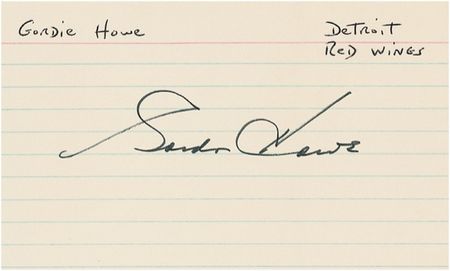 Gordie Howe
Detroit
Red Wings
Gordie Howe